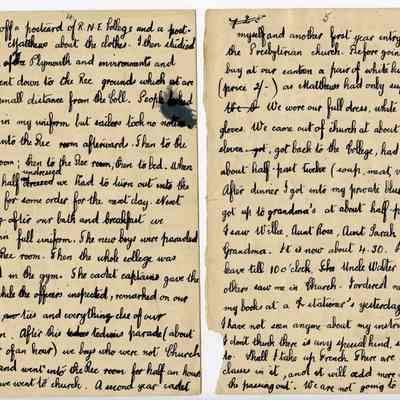 off a postcard of R.N.E College and a post-
Matthews about the clothes. I then studied
of Plymouth and environments and
ent down to the Rec grounds which at are
small distance from the Coll. People
in my uniform but sailors took no notice
into the Rec room afterwards. Then to the
room; then to the Rec room, then to bed. When
half undressed we had to turn out into the
for some order for the next day. Next
g after our bath and breakfast we
in full uniform. The new boys were paraded
Rec room. Then the whole college was
d in the gym. The cadet captains gave the
while the officers inspected, remarked on our
ties and everything else of our
n. After this tedious parade (about
of an hour) we boys who were not Church
and went into the Rec room for half an hour
we went to church. A second year cadet
5
myself and another first year entry
the Presbyterian church. Before going
buy at our canteen a pair of white ki
(price 2/-) as Matthews had only su
We wore our full dress, white
gloves. We came out of church at about
eleven, got back to the College, had
about half-past twelve (soup, meat, v
After dinner I got into my private blu
got up to grandma's at about half-p
I saw Willie, Aunt Rose, Aunt Sarah
Grandma. It is now about 4.30. A
leave till 10 o'clock. Uncle Walter
others saw me in Church. I ordered n
my books at a stationer's yesterday
I have not seen anyone about my instru
I don't think there is any special kind, s
to. Shall I take up French. There are
classes in it, and it will add more m
the passing out. We are not going to